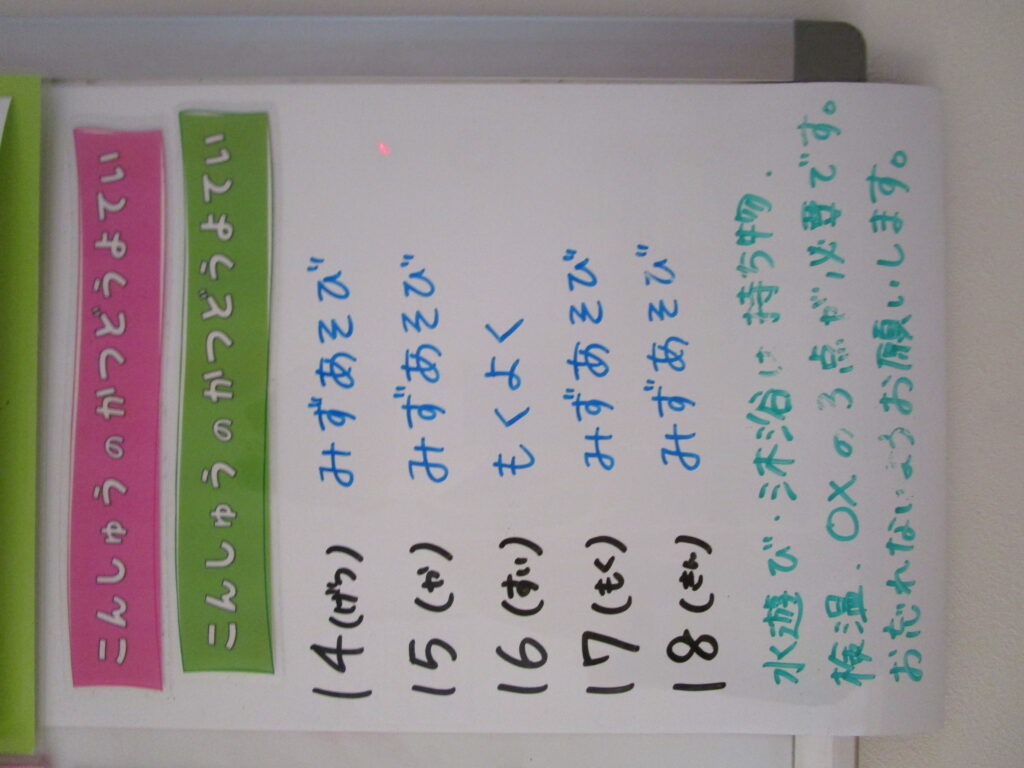 こんしゅうのかつどうよてい
こんしゅうのかつどうよてい
14(げつ) みずあそび
15(か) みずあそび
16(すい) もくよく
17(もく) みずあそび
18(きん) みずあそび
水遊び・沐浴は持ち物、
検温、〇×の3点が必要です。
おだれないようお願いします。